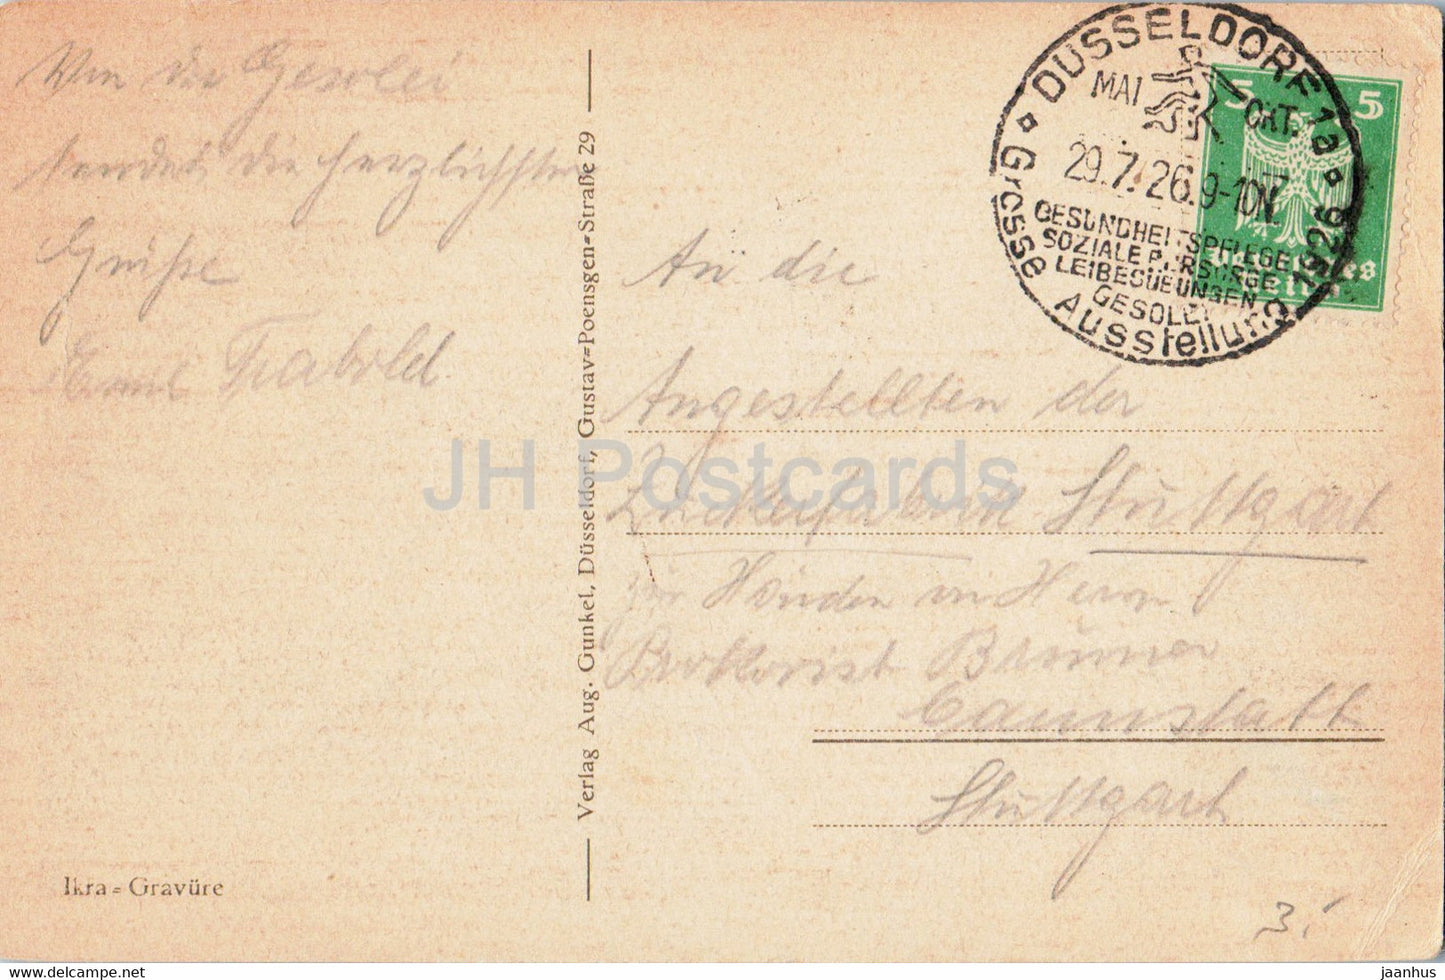 Von der Gesolei
sendet die herzlichsten
Grüße
Emil Trabold
Verlag Aug. Gunkel, Düsseldorf, Gustav=Poensgen=Straße 29
Ikra=Gravüre
DÜSSELDORF 1a
MAI OKT.
29.7.26.9-10N
GESUNDHEITSPFLEGE
SOZIALE FÜRSORGE
LEIBESÜBUNGEN
GESOLEI
Grosse Ausstellung 1926
5 5
Deutsches
Reich
An die
Angestellten der
Stuttgart
zu Händen v. Herrn
Prokurist Brunner
Cannstatt
Stuttgart
3.
JH Postcards
www.delcampe.net
jaanhus